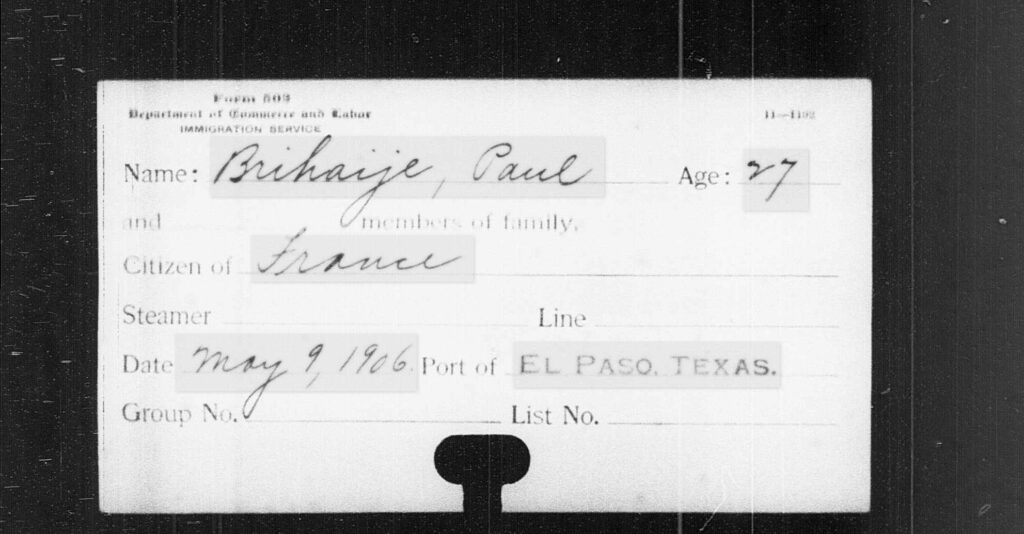 Form 503
Department of Commerce and Labor
IMMIGRATION SERVICE
11—1102
Name: Brihaije, Paul Age: 27
and members of family,
Citizen of France
Steamer Line
Date May 9, 1906. Port of EL PASO, TEXAS.
Group No. List No.